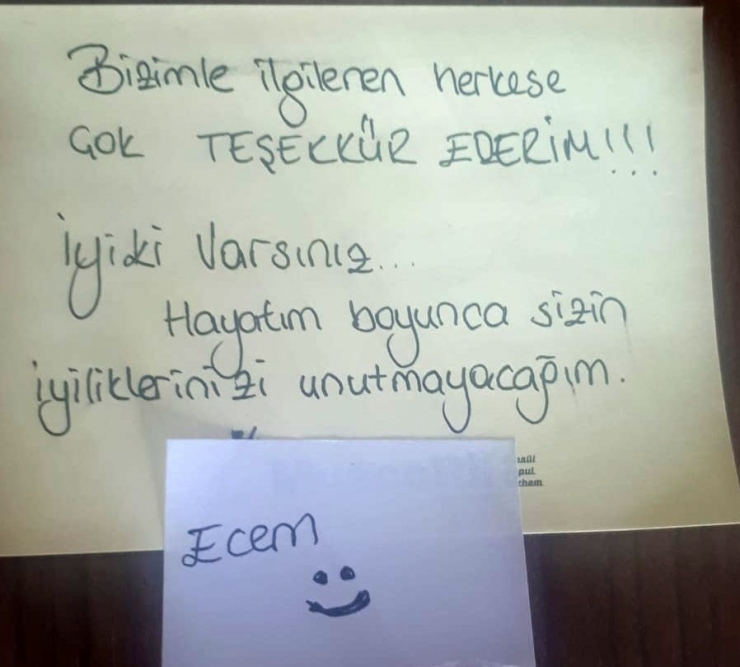 Bizimle ilgilenen herkese
ÇOK TEŞEKKÜR EDERİM!!!
İyiki Varsınız...
Hayatım boyunca sizin
iyiliklerinizi unutmayacağım.
Ecem